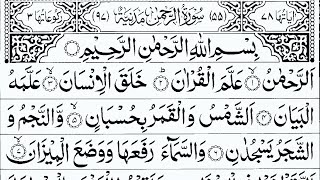 اٰيَاتُهَا ٧٨ (٥٥) سُوْرَةُ الرَّحْمٰنِ مَدَنِيَّةٌ (٩٧) رُكُوْعَاتُهَا ٣
بِسْمِ اللّٰهِ الرَّحْمٰنِ الرَّحِيْمِ
اَلرَّحْمٰنُ ۙ عَلَّمَ الْقُرْاٰنَ ؕ خَلَقَ الْاِنْسَانَ ۙ عَلَّمَهُ
الْبَيَانَ ۴ اَلشَّمْسُ وَالْقَمَرُ بِحُسْبَانٍ ۵ وَّالنَّجْمُ وَ
الشَّجَرُ يَسْجُدٰنِ ۶ وَالسَّمَآءَ رَفَعَهَا وَوَضَعَ الْمِيْزَانَ ۷